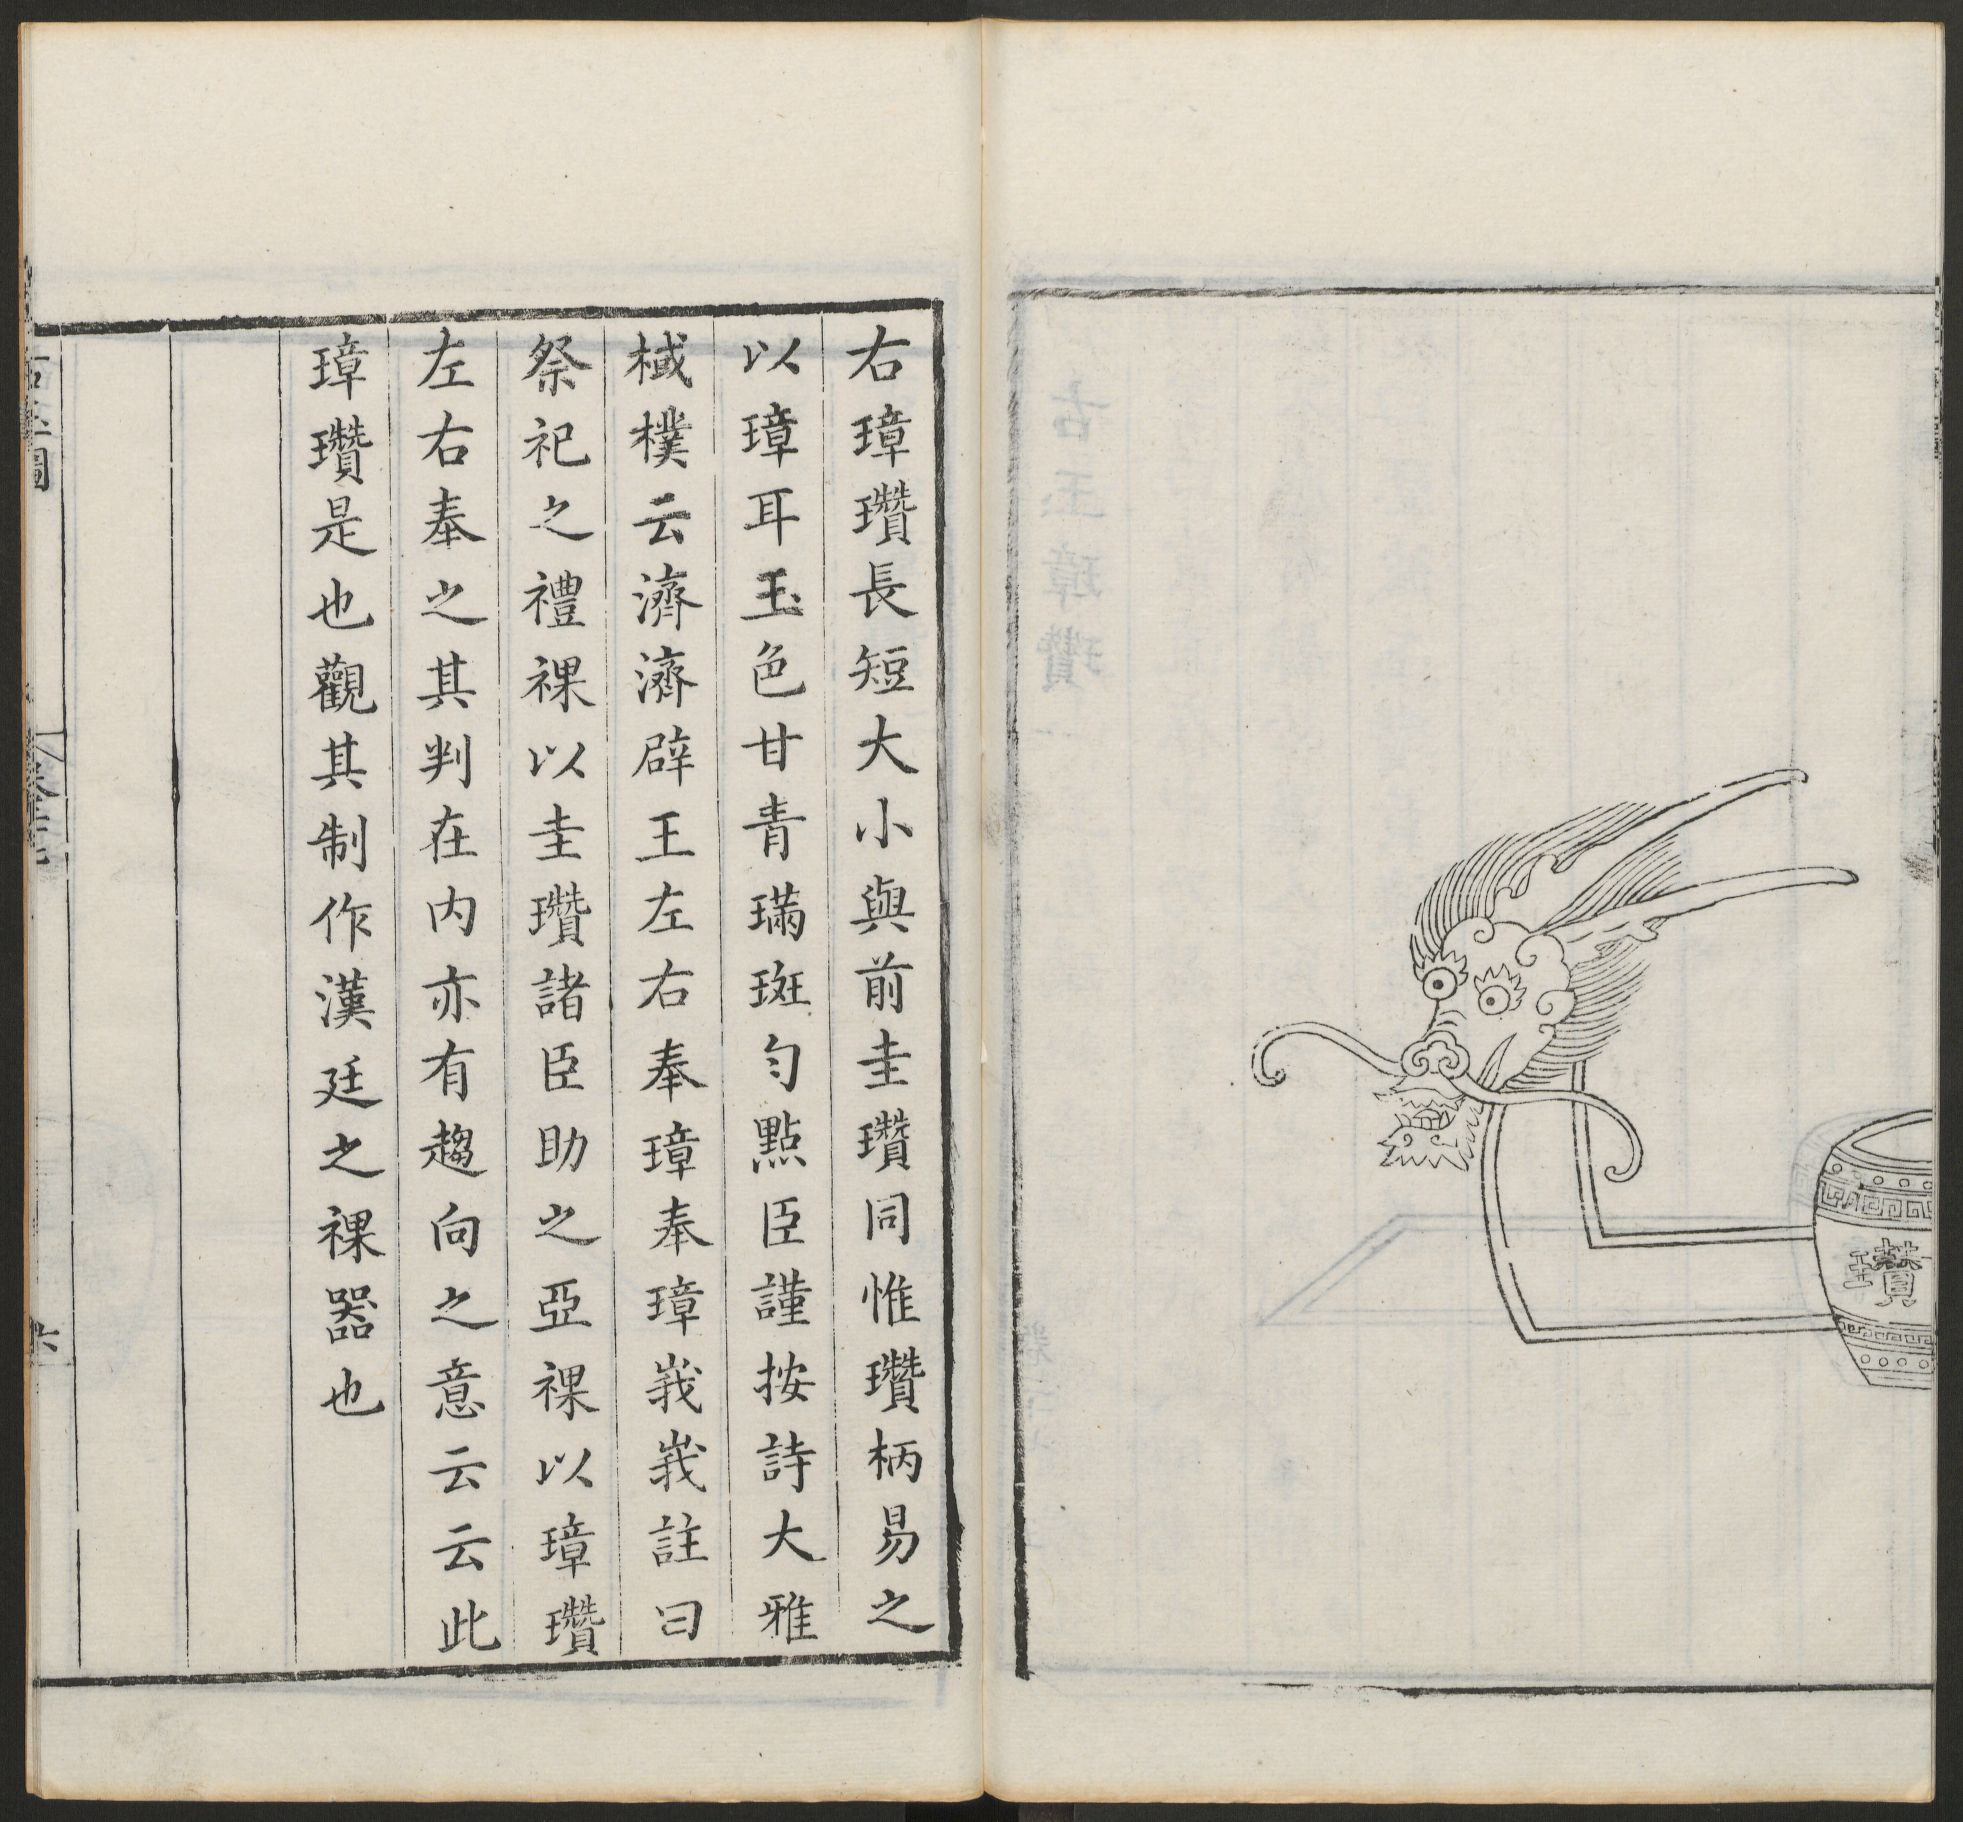 瓚
右璋瓚長短大小與前圭瓚同惟瓚柄易之
以璋耳玉色甘青璊斑勻點臣謹按詩大雅
棫樸云濟濟辟王左右奉璋奉璋峩峩註曰
祭祀之禮祼以圭瓚諸臣助之亞祼以璋瓚
左右奉之其判在內亦有趨向之意云云此
璋瓚是也觀其制作漢廷之祼器也